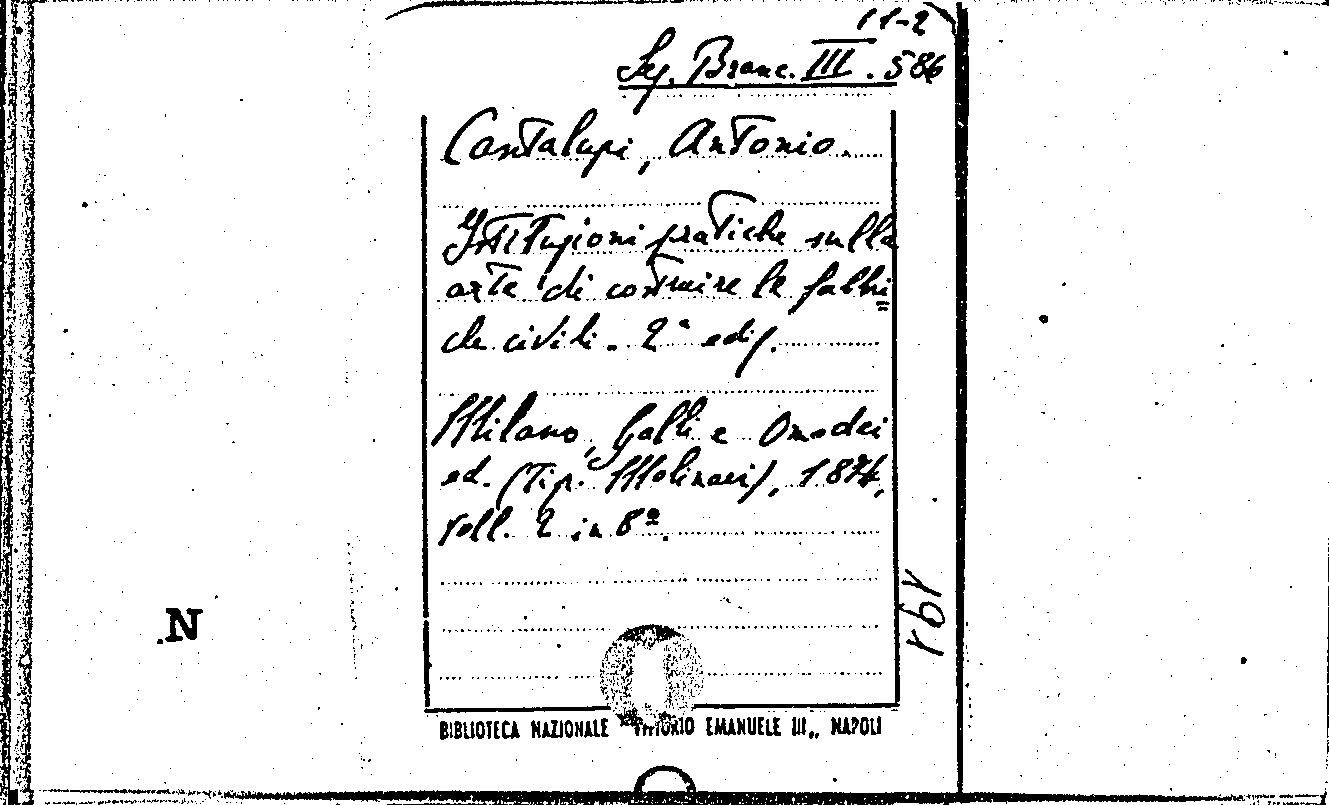 11-2
Seg. Branc. III. 586
Cantalupi, Antonio.
Istituzioni pratiche sulla
arte di costruire le fabbri
che civili. 2ª ediz.
Milano, Galli e Omodei
ed. (Tip. Molinari), 1874,
voll. 2 in 8º.
N
BIBLIOTECA NAZIONALE "VITTORIO EMANUELE III„ NAPOLI